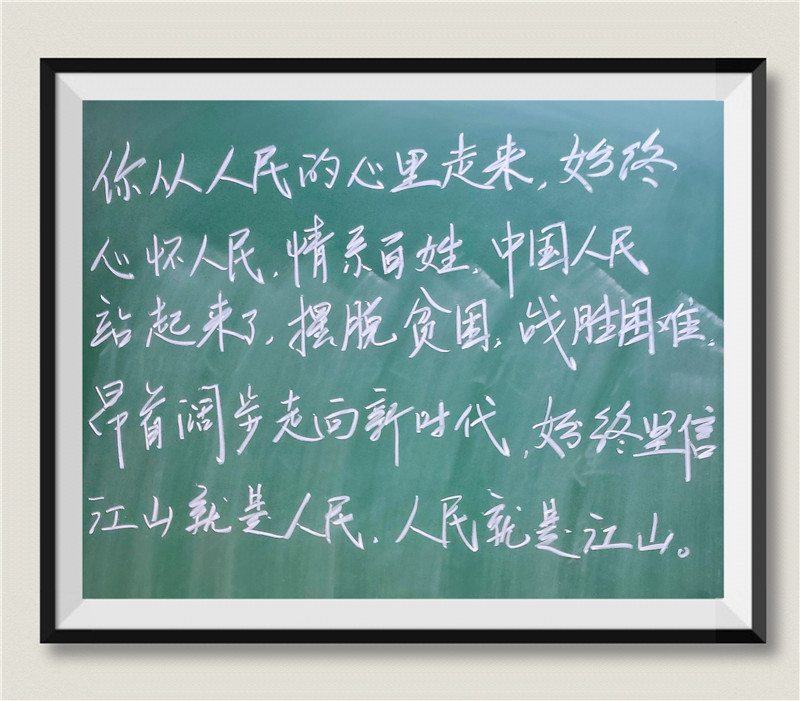 你从人民的心里走来,始终
心怀人民,情系百姓,中国人民
站起来了,摆脱贫困,战胜困难,
昂首阔步走向新时代,始终坚信
江山就是人民,人民就是江山。